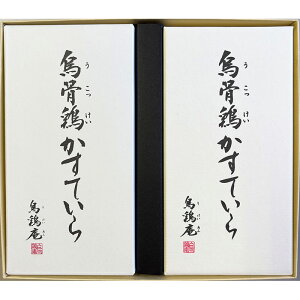 烏骨鶏かすていら
うこっけい
烏鶏庵
うけいあん
烏骨鶏かすていら
うこっけい
烏鶏庵
うけいあん